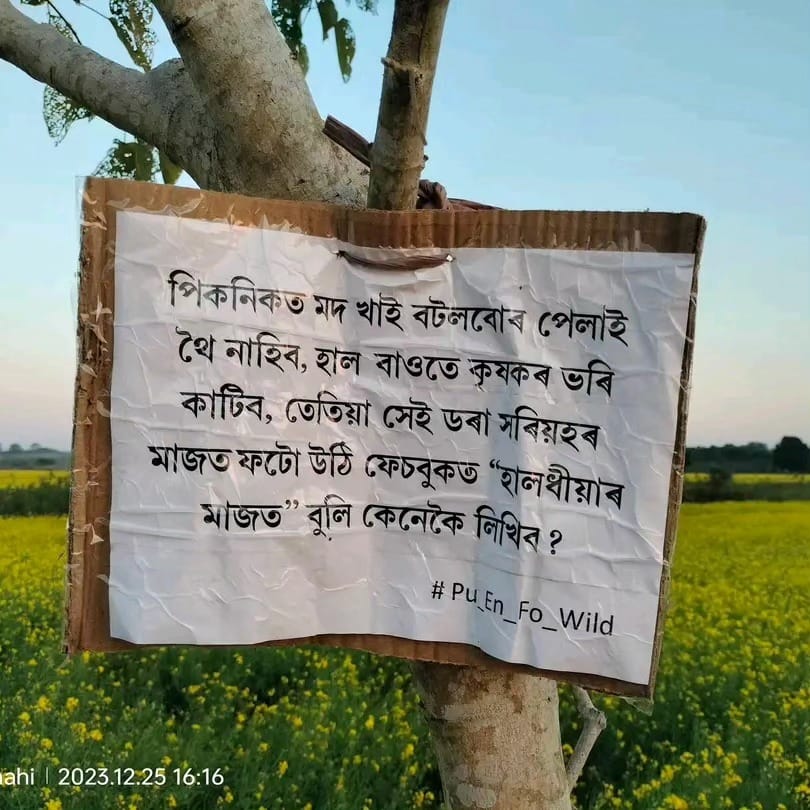 পিকনিকত মদ খাই বটলবোৰ পেলাই
থৈ নাহিব, হাল বাওতে কৃষকৰ ভৰি
কাটিব, তেতিয়া সেই ডৰা সৰিয়হৰ
মাজত ফটো উঠি ফেচবুকত “হালধীয়াৰ
মাজত” বুলি কেনেকৈ লিখিব ?
# Pu_En_Fo_Wild
2023.12.25 16:16